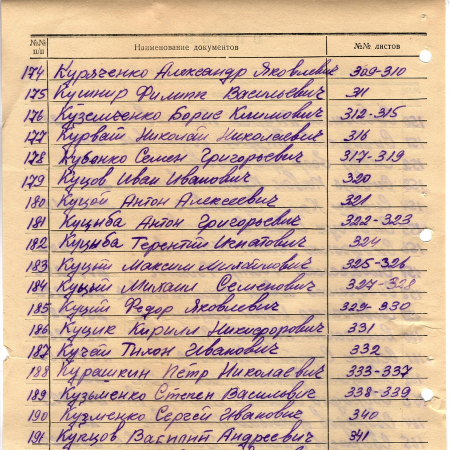 №№ п/п Наименование документов №№ листов
174 Куряченко Александр Яковлевич 309-310
175 Кушнир Филипп Васильевич 311
176 Куземченко Борис Климович 312-315
177 Куровай Николай Николаевич 316
178 Кубенко Семен Григорьевич 317-319
179 Куцов Иван Иванович 320
180 Куцой Антон Алексеевич 321
181 Куцыба Антон Григорьевич 322-323
182 Куцыба Терентий Игнатович 324
183 Куций Максим Михайлович 325-326
184 Куцый Михаил Семенович 327-328
185 Куций Федор Яковлевич 329-330
186 Куцик Кирилл Никифорович 331
187 Кучай Тихон Иванович 332
188 Курашкин Петр Николаевич 333-337
189 Кузьменко Степан Василович 338-339
190 Кузменко Сергей Иванович 340
191 Купцов Василий Андреевич 341